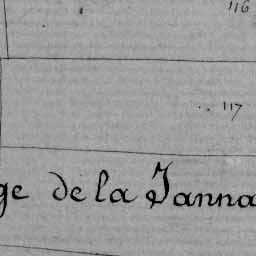 116
.. 117
ge de la Janna